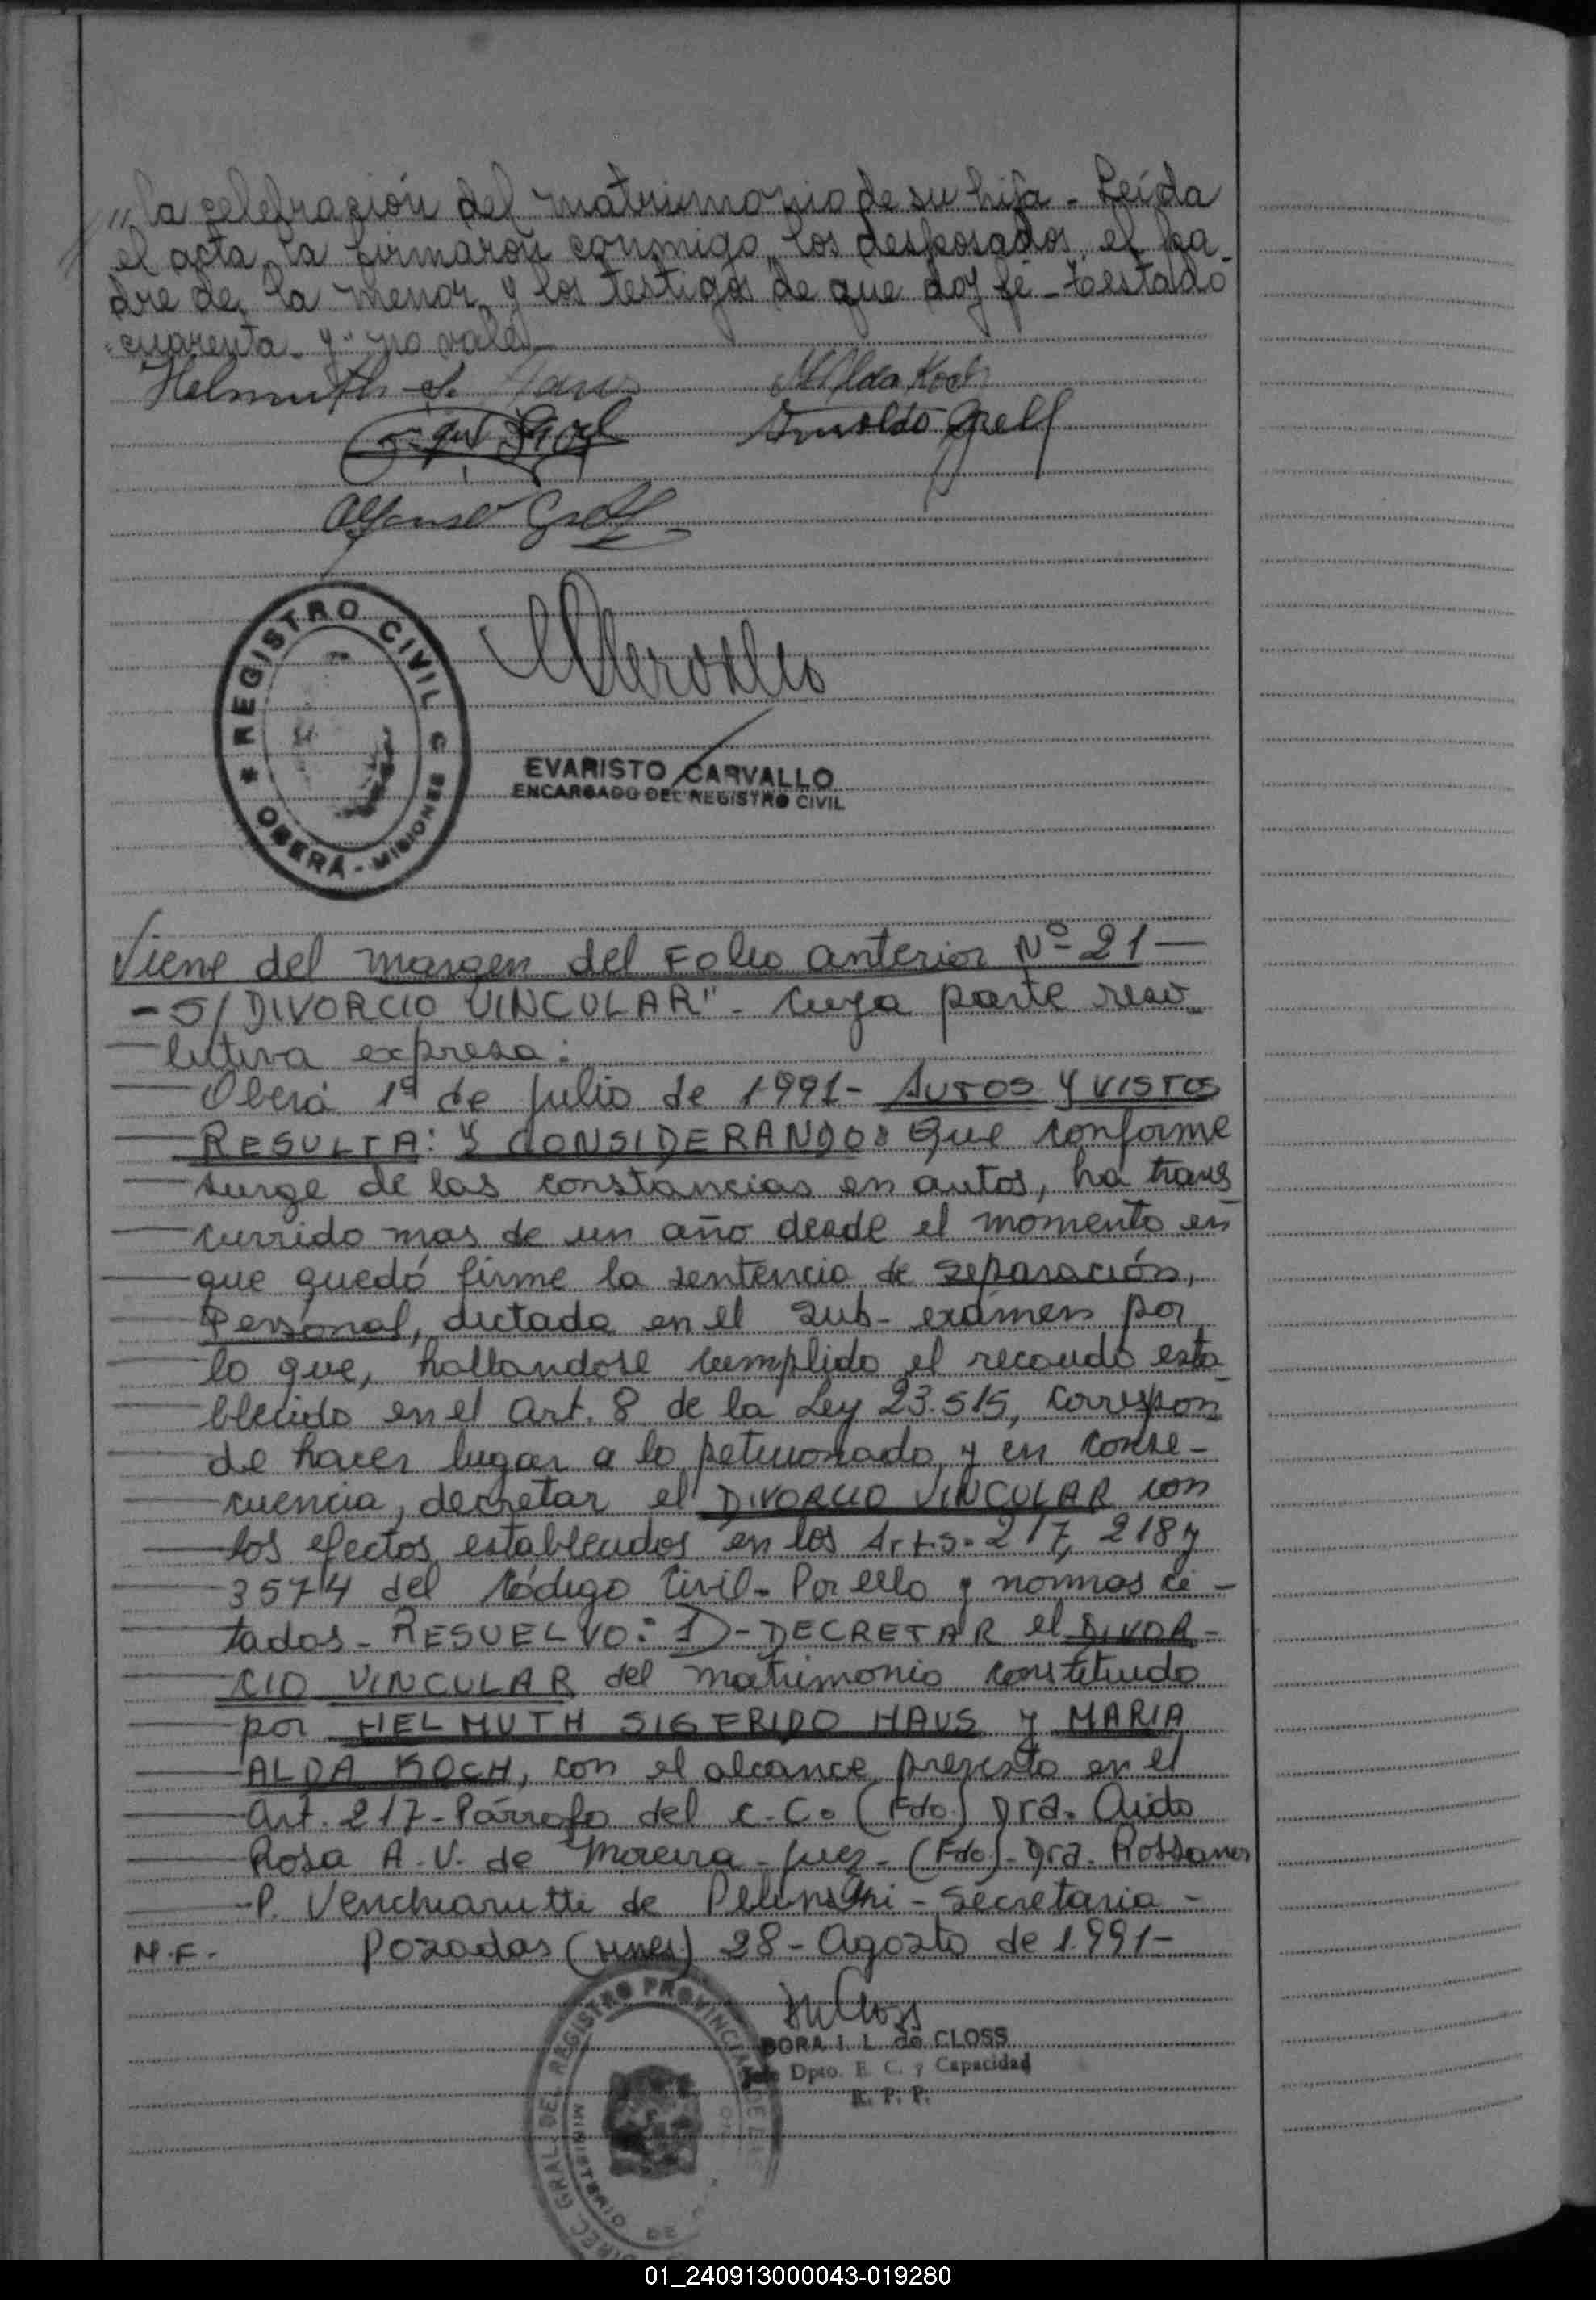 "la celebración del matrimonio de su hija - Leída
el acta la firmaron conmigo los desposados, el pa-
dre de la menor y los testigos de que doy fé - testado
"cuarenta - y" no vale -
Helmuth S. Haus
M Alda Koch
Arnoldo Grell
Alfonso Grell
REGISTRO CIVIL
OBERÁ - MISIONES
EVARISTO CARVALLO
ENCARGADO DEL REGISTRO CIVIL
Viene del margen del Folio anterior Nº 21 -
- S/ DIVORCIO VINCULAR" - Cuya parte reso-
lutiva expresa:
Oberá 1º de julio de 1991 - AUTOS Y VISTOS
RESULTA: Y CONSIDERANDO: Que conforme
surge de las constancias en autos, ha trans
currido mas de un año desde el momento en
que quedó firme la sentencia de separación,
Personal, dictada en el sub-exámen por
lo que, hallandose cumplido el recaudo esta
blecido en el Art. 8 de la Ley 23.515, correspon
de hacer lugar a lo peticionado y en conse-
cuencia, decretar el DIVORCIO VINCULAR con
los efectos establecidos en los Arts. 217, 218 y
3574 del Código Civil - Por ello y normas ci-
tadas - RESUELVO: 1) - DECRETAR el DIVOR-
CIO VINCULAR del matrimonio constituido
por HELMUTH SIGFRIDO HAUS y MARIA
ALDA KOCH, con el alcance previsto en el
Art. 217 - Párrafo del C.C. (Fdo.) Dra. Aida
Rosa A. V. de Moreira - Juez - (Fdo) - Dra. Rossana
P. Venchiarutti de - Secretaria -
M.F. - Posadas (Mnes) 28 - Agosto de 1.991 -
DORA I. L. de CLOSS
Jefe Dpto. E. C. y Capacidad
R. P. P.
DIREC. GRAL. DEL REGISTRO PROVINCIAL DE
MINISTERIO DE
01_240913000043-019280